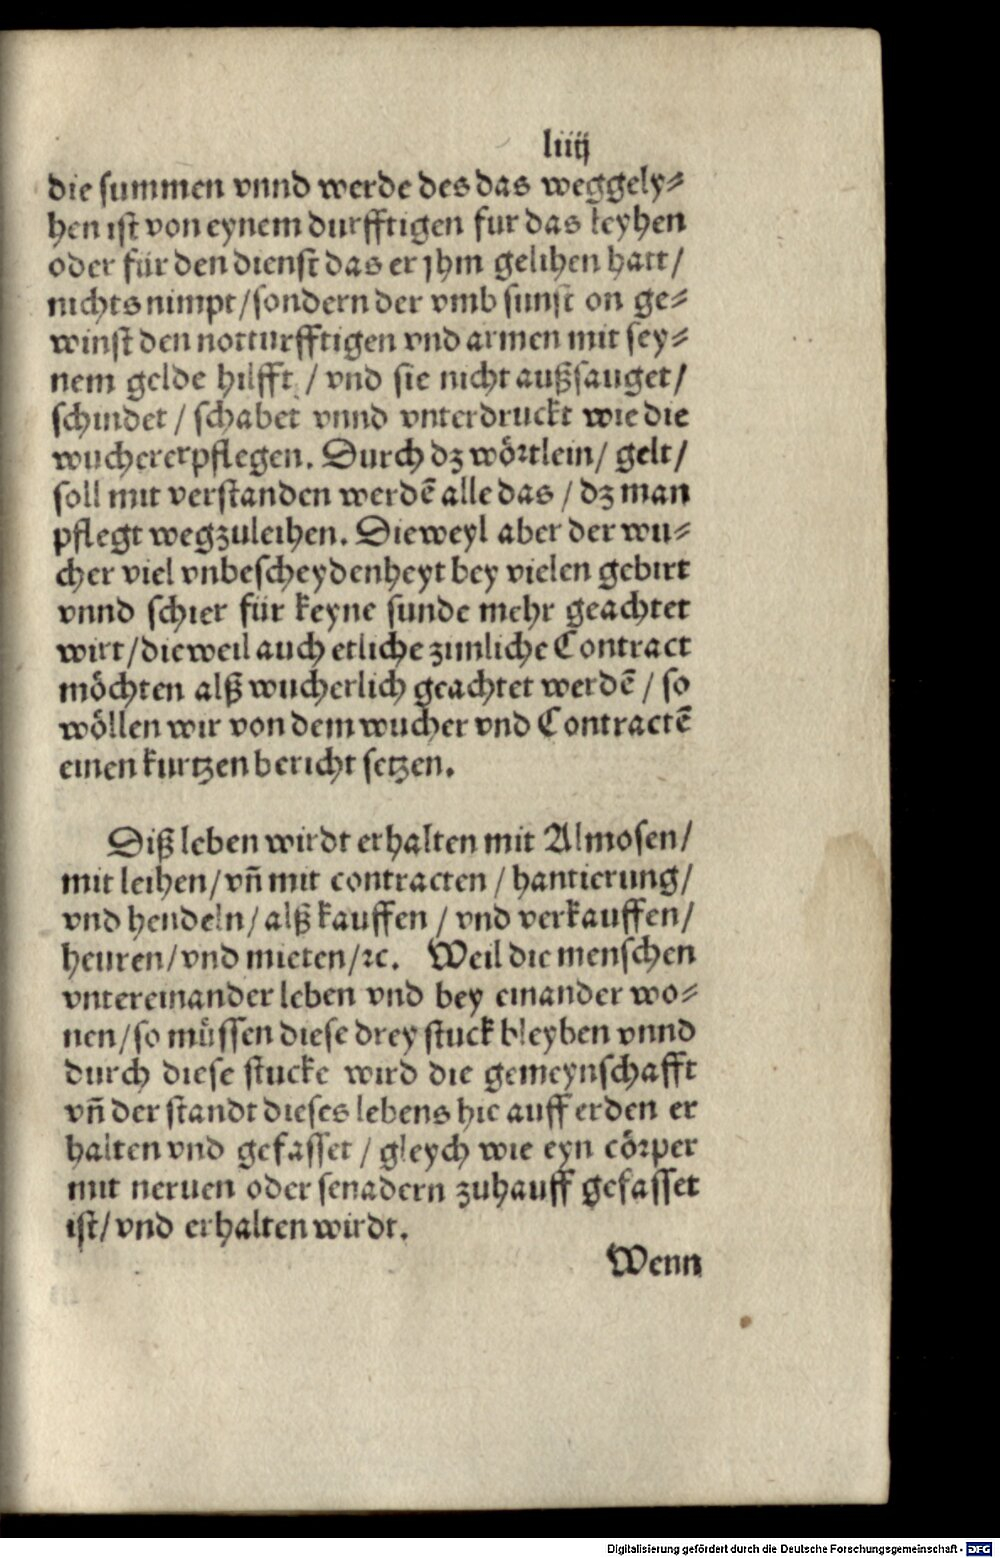 liiij
die summen vnnd werde des das weggely⸗
hen ist von eynem durfftigen fur das leyhen
oder für den dienst das er jhm gelihen hatt/
nichts nimpt/sondern der vmb sunst on ge⸗
winst den notturfftigen vnd armen mit sey⸗
nem gelde hilfft / vnd sie nicht außsauget/
schindet / schabet vnnd vnterdruckt wie die
wuchererpflegen. Durch dz wörtlein/ gelt/
soll mit verstanden werdē alle das / dz man
pflegt wegzuleihen. Dieweyl aber der wu⸗
cher viel vnbescheydenheyt bey vielen gebirt
vnnd schier für keyne sunde mehr geachtet
wirt/dieweil auch etliche zimliche Contract
möchten alß wucherlich geachtet werdē / so
wöllen wir von dem wucher vnd Contractē
einen kurtzen bericht setzen.
Diß leben wirdt erhalten mit Almosen/
mit leihen/vñ mit contracten / hantierung/
vnd hendeln/alß kauffen / vnd verkauffen/
heuren/vnd mieten/ꝛc. Weil die menschen
vntereinander leben vnd bey einander wo⸗
nen/so müssen diese drey stuck bleyben vnnd
durch diese stucke wird die gemeynschafft
vñ der standt dieses lebens hie auff erden er
halten vnd gefasset / gleych wie eyn cörper
mit neruen oder senadern zuhauff gefasset
ist/vnd erhalten wirdt.
Wenn
Digitalisierung gefördert durch die Deutsche Forschungsgemeinschaft - DFG